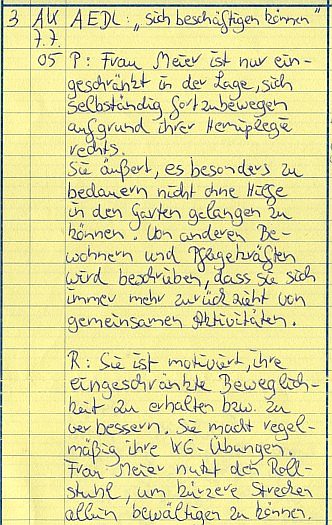 3 AK AEDL: „sich beschäftigen können"
7.7.
05 P: Frau Meier ist nur ein-
geschränkt in der Lage, sich
selbständig fortzubewegen
aufgrund ihrer Hemiplegie
rechts.
Sie äußert, es besonders zu
bedauern nicht ohne Hilfe
in den Garten gelangen zu
können. Von anderen Be-
wohnern und Pflegekräften
wird beschrieben, dass sie sich
immer mehr zurück zieht von
gemeinsamen Aktivitäten.
R: Sie ist motiviert, ihre
eingeschränkte Beweglich-
keit zu erhalten bzw. zu
verbessern. Sie macht regel-
mäßig ihre KG-Übungen.
Frau Meier nutzt den Roll-
stuhl, um kürzere Strecken
allein bewältigen zu können.